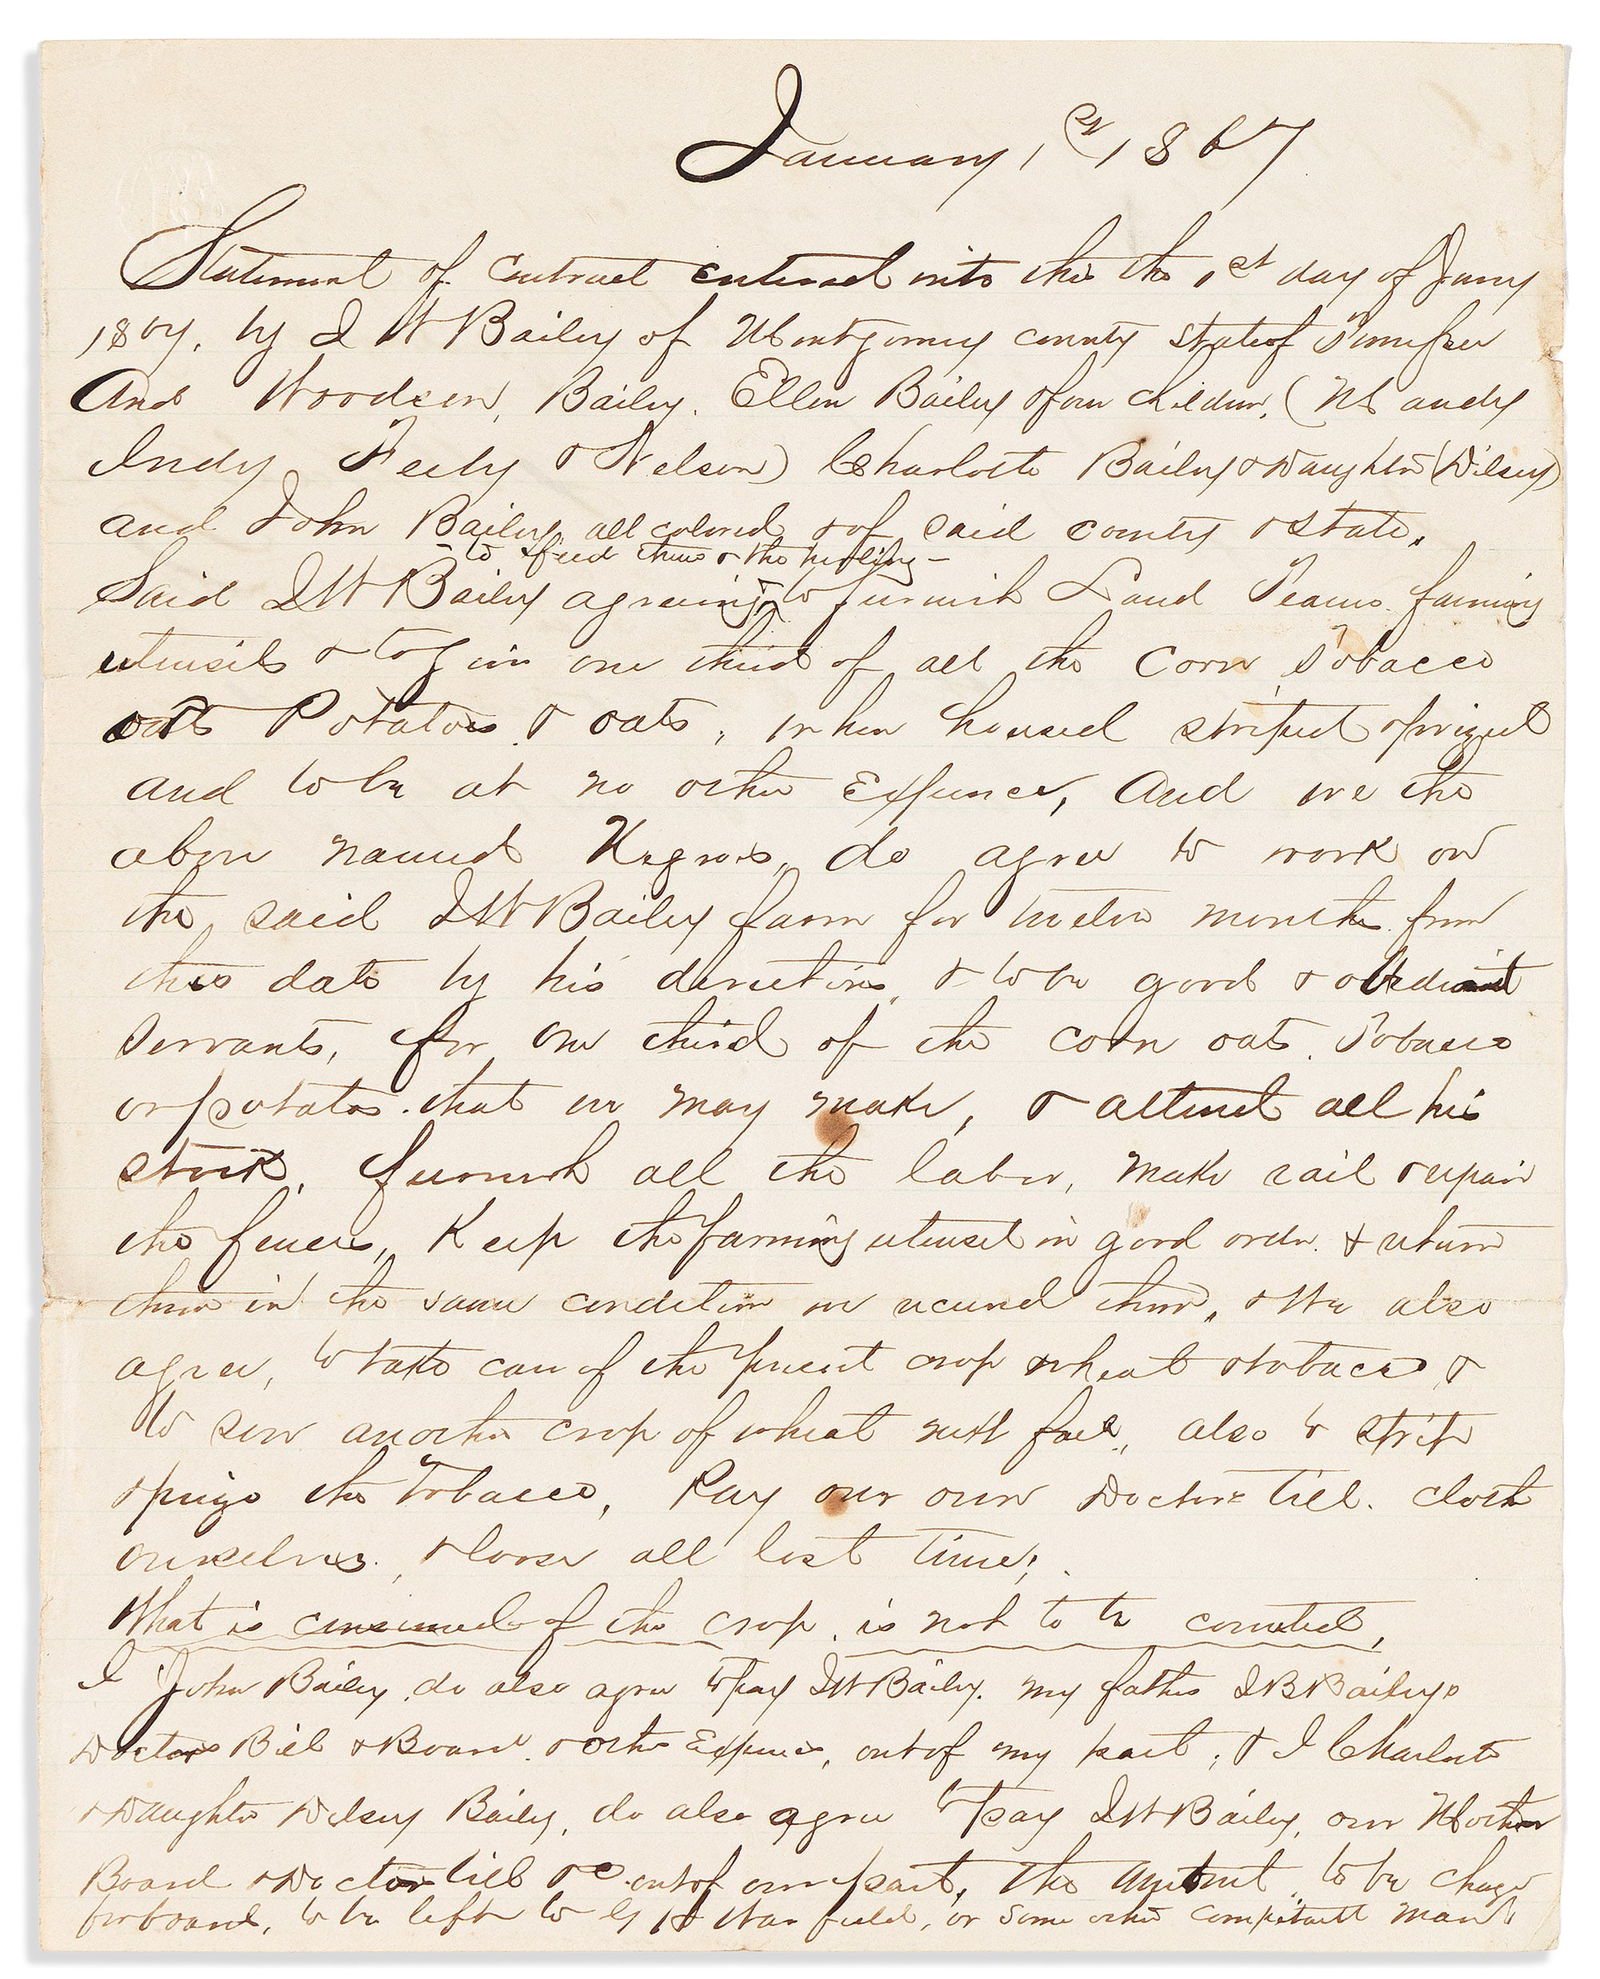 January 1st 1867
Statement of Contract entered into this the 1st day of Jany
1867. by J W Bailey of Montgomery county State of Tennessee
And Woodson, Bailey, Ellen Bailey & four children, (Mandy
Indy, Feely & Nelson) Charlotte Bailey & Daughter (Dilsey)
and John Bailey, all colored & of said county & State.
to feed them & the
Said J W Bailey agreeing to furnish Land Teams farming
utensils & to give one third of all the Corn Tobacco
oats Potatoes & oats, when housed striped & prized
and to be at no other Expence, And we the
above named Negroes, do agree to work on
the said J W Bailey farm for twelve months from
this date by his directions, & to be good & obedient
servants, for one third of the corn oats Tobacco
or potatoes that we may make, & attend all his
stock, furnish all the labor, make rail & repair
the fences, Keep the farming utensil in good order & return
them in the same condition we received them, & We also
agree, to take care of the present crop wheat & tobacco, &
to sow another crop of wheat next fall, also to strip
& prize the Tobacco, Pay our own Doctors bill. cloth
ourselves, & loose all lost time,
What is consumed of the crop, is not to be counted,
I John Bailey, do also agree to pay J W Bailey, my father J B Baileys
Doctors Bill & Board & other Expences, out of my part, & I Charlotte
& Daughter Dilsey Bailey, do also agree to pay J W Bailey, our Mother
Board & Doctor bill &c out of our part, the amount to be charge
for board, to be left to Warfield, or some other competent man